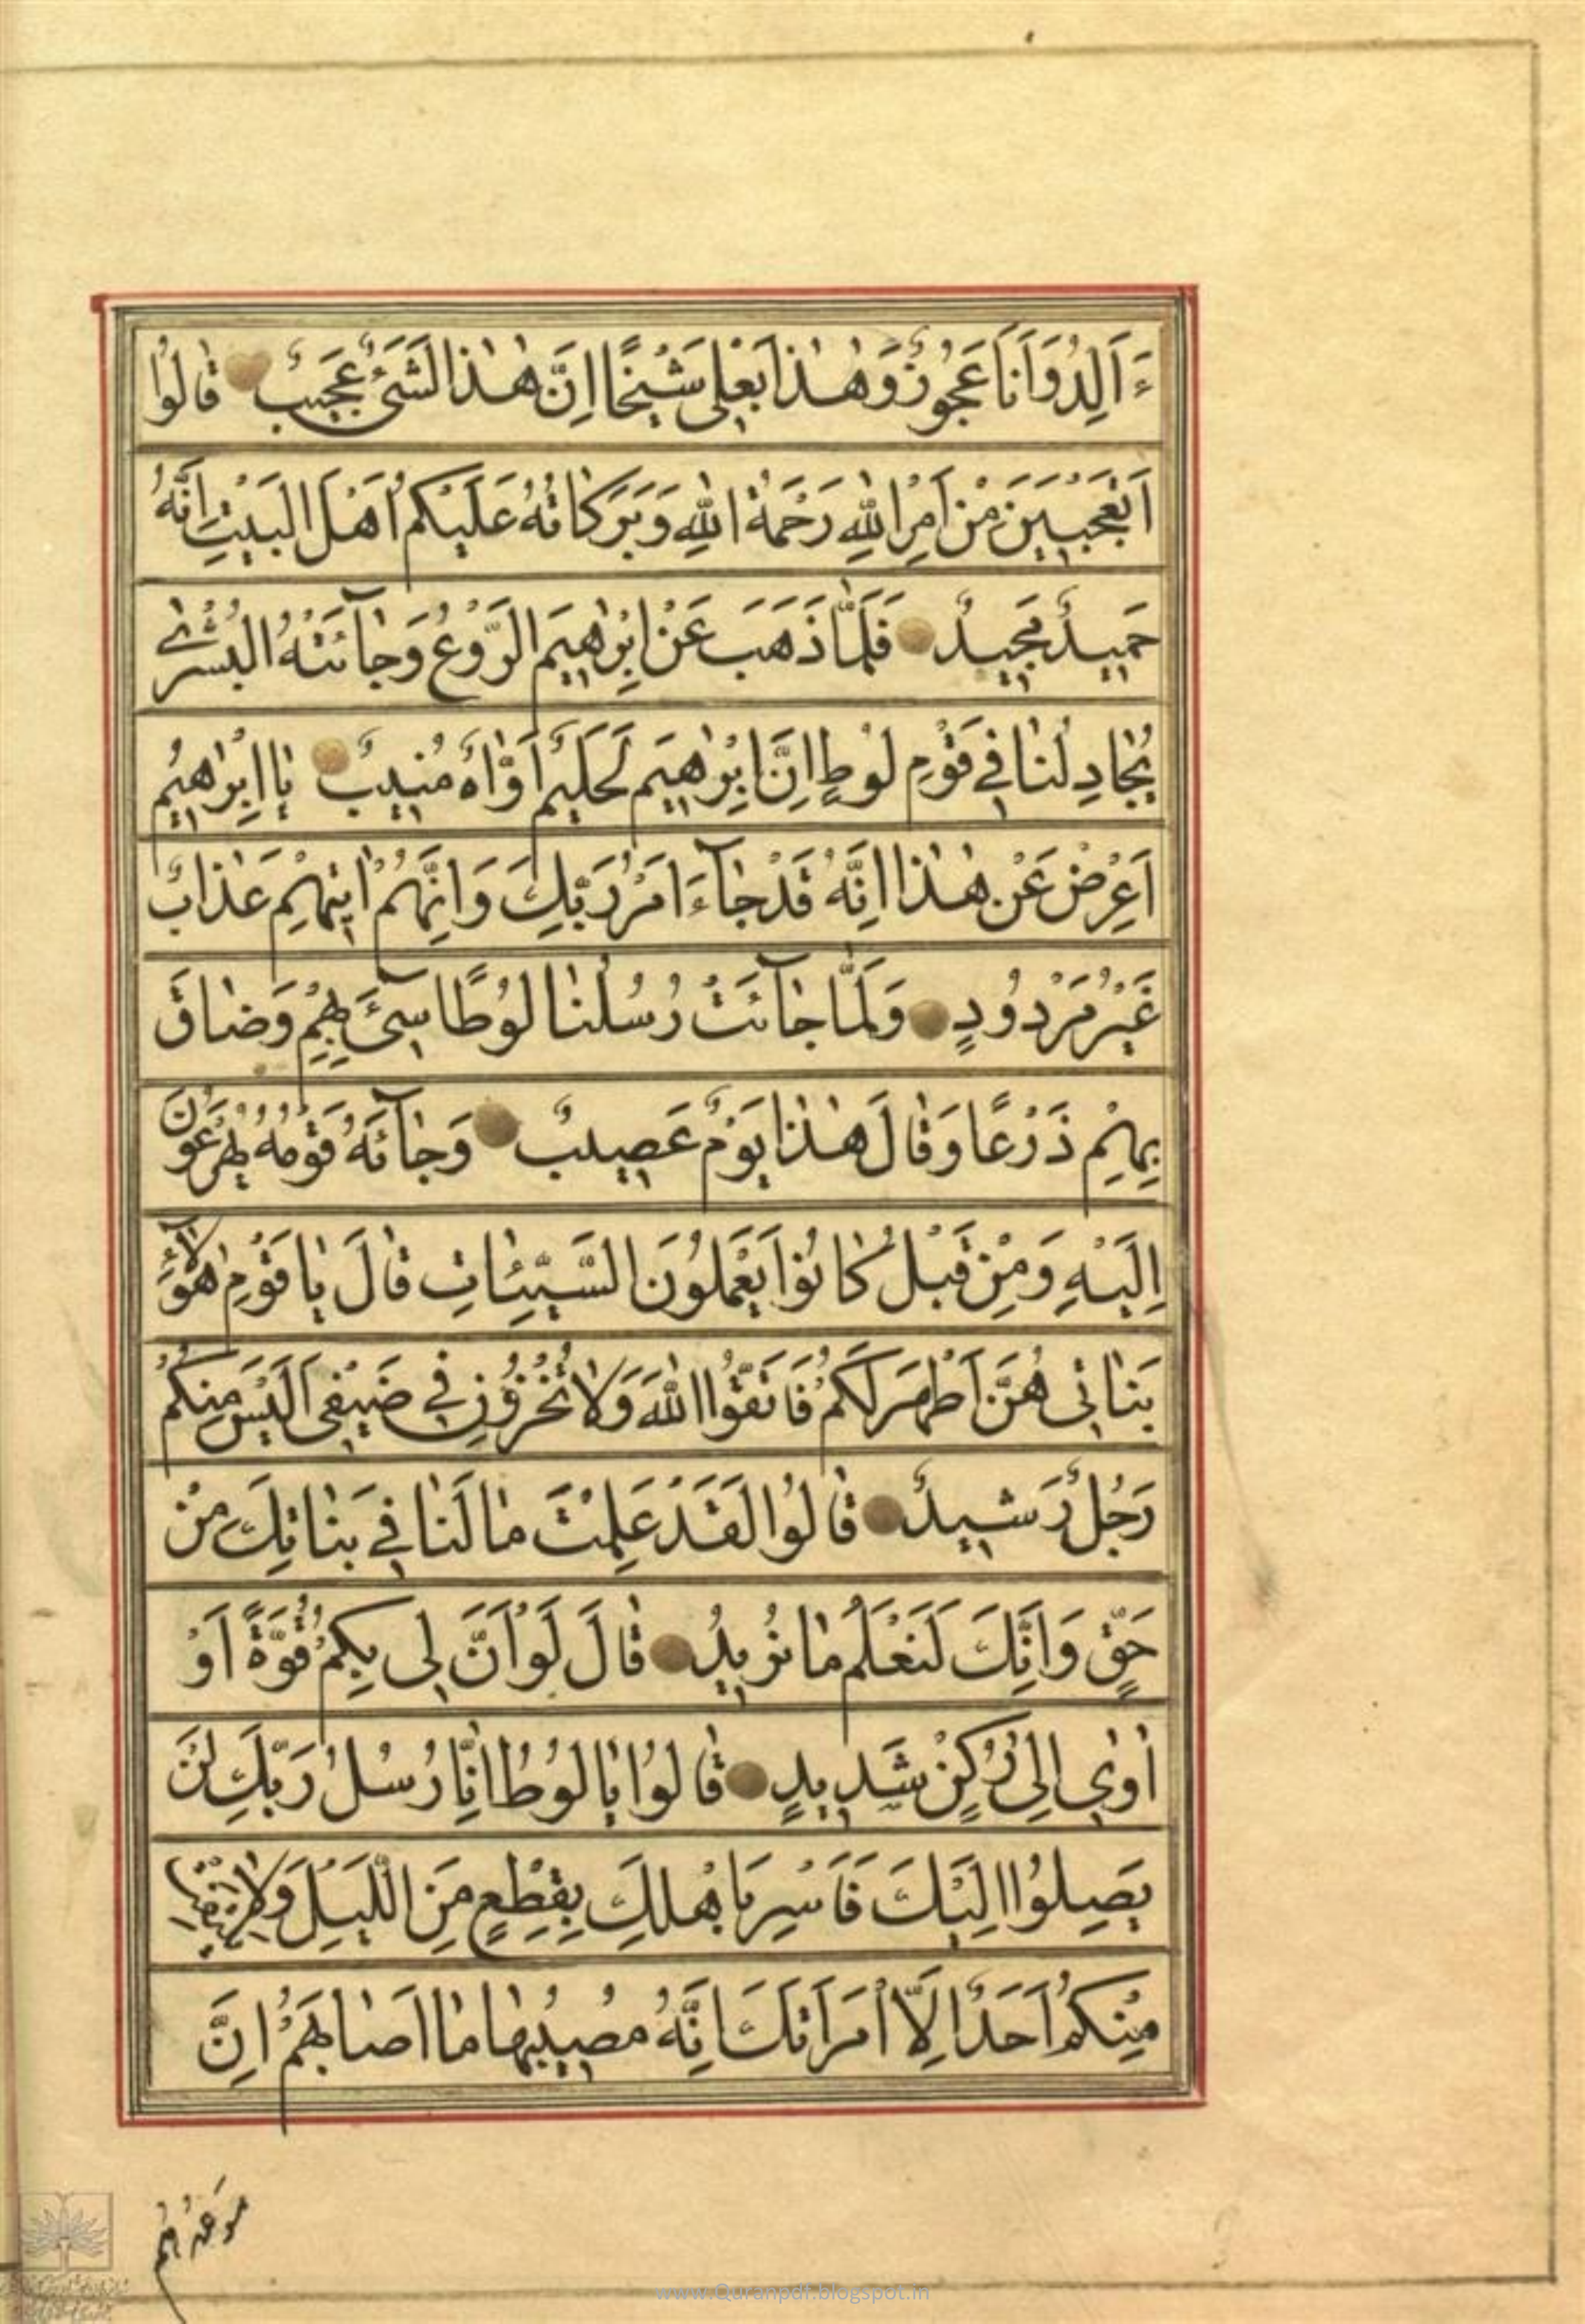 ءَاَلِدُ وَاَنَا عَجُوزٌ وَهٰذَا بَعْلِي شَيْخًا اِنَّ هٰذَا لَشَيْءٌ عَجِيبٌ قٰالُوا
اَتَعْجَبِينَ مِنْ اَمْرِ اللهِ رَحْمَةُ اللهِ وَبَرَكٰاتُهُ عَلَيْكُمْ اَهْلَ الْبَيْتِ اِنَّهُ
حَمِيدٌ مَجِيدٌ فَلَمّٰا ذَهَبَ عَنْ اِبْرٰاهِيمَ الرَّوْعُ وَجٰآئَتْهُ الْبُشْرٰى
يُجٰادِلُنٰا فِي قَوْمِ لُوطٍ اِنَّ اِبْرٰاهِيمَ لَحَلِيمٌ اَوّٰاهٌ مُنِيبٌ يٰا اِبْرٰاهِيمُ
اَعْرِضْ عَنْ هٰذٰا اِنَّهُ قَدْ جٰآءَ اَمْرُ رَبِّكَ وَاِنَّهُمْ اٰتِيهِمْ عَذٰابٌ
غَيْرُ مَرْدُودٍ وَلَمّٰا جٰآئَتْ رُسُلُنٰا لُوطًا سِيٓءَ بِهِمْ وَضٰاقَ
بِهِمْ ذَرْعًا وَقٰالَ هٰذٰا يَوْمٌ عَصِيبٌ وَجٰآئَهُ قَوْمُهُ يُهْرَعُونَ
اِلَيْهِ وَمِنْ قَبْلُ كٰانُوا يَعْمَلُونَ السَّيِّئٰاتِ قٰالَ يٰا قَوْمِ هٰؤُلٰآءِ
بَنٰاتِي هُنَّ اَطْهَرُ لَكُمْ فَاتَّقُوا اللهَ وَلٰا تُخْزُونِ فِي ضَيْفِي اَلَيْسَ مِنْكُمْ
رَجُلٌ رَشِيدٌ قٰالُوا لَقَدْ عَلِمْتَ مٰا لَنٰا فِي بَنٰاتِكَ مِنْ
حَقٍّ وَاِنَّكَ لَتَعْلَمُ مٰا نُرِيدُ قٰالَ لَوْ اَنَّ لِي بِكُمْ قُوَّةً اَوْ
اٰوِي اِلٰى رُكْنٍ شَدِيدٍ قٰالُوا يٰا لُوطُ اِنّٰا رُسُلُ رَبِّكَ لَنْ
يَصِلُوا اِلَيْكَ فَاَسْرِ بِاَهْلِكَ بِقِطْعٍ مِنَ اللَّيْلِ وَلٰا يَلْتَفِتْ
مِنْكُمْ اَحَدٌ اِلَّا امْرَاَتَكَ اِنَّهُ مُصِيبُهٰا مٰا اَصٰابَهُمْ اِنَّ
مَوْعِدَهُمُ
www.Quranpdf.blogspot.in